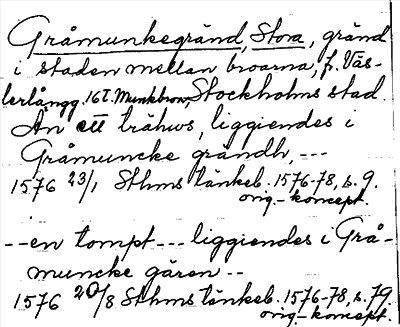 Gråmunkegränd, Stora, gränd
i staden mellan broarna, f. Väs-
terlångg. 16 t. Munkbron, Stockholms stad.
An ett trähws, liggiendes i
Gråmuncke grändh, ---
1576 23/1 Sthms tänkeb. 1576-78, s. 9.
orig.- koncept.
--en tompt --- liggiendes i Grå-
muncke gären --
1576 20/8 Sthms tänkeb. 1576-78, s. 79.
orig.- koncept.